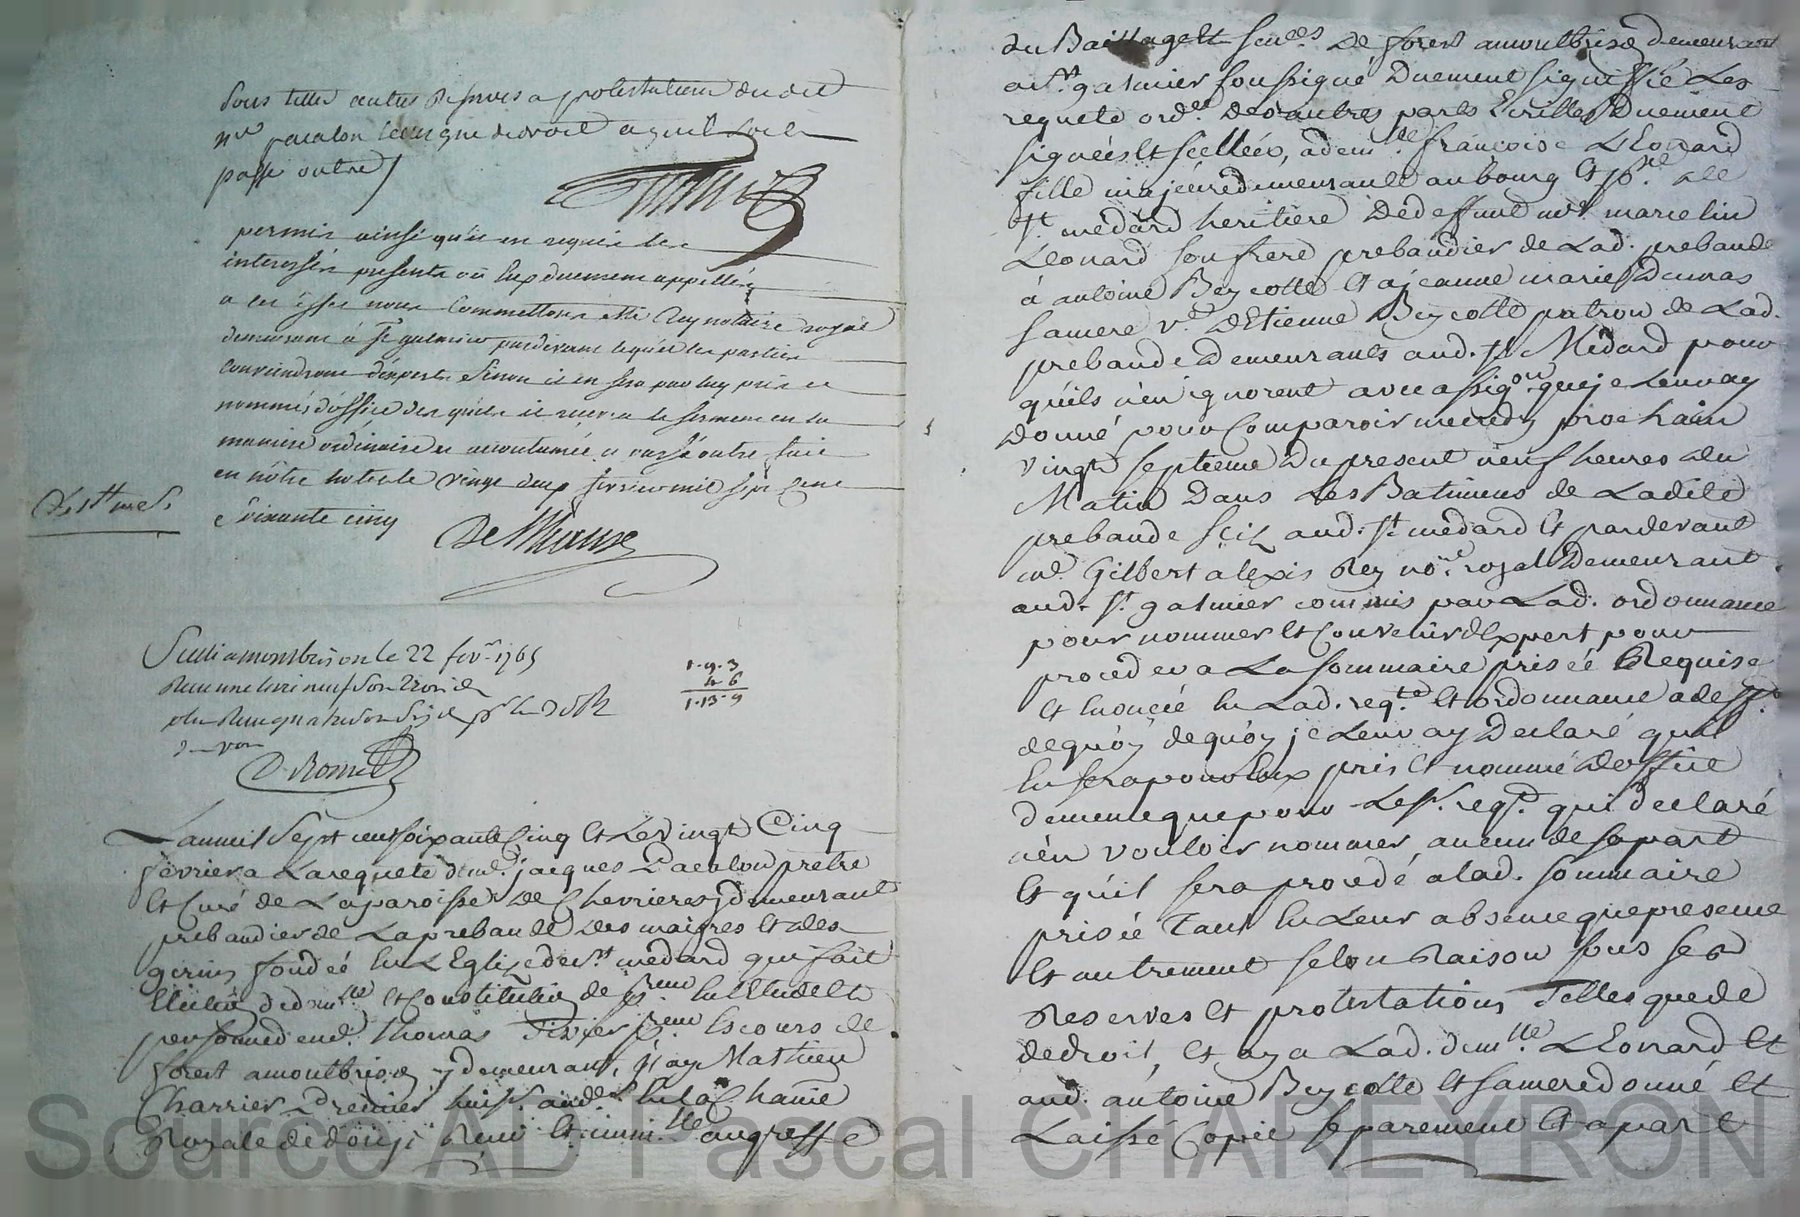 Sous telles autres reserves a protestations dudit
Mre pacalon leur que de droit a quil soit
passé outre /
permis ainsi qu'il en requis les
interessés presents ou eux duement appellés
a cet effet nous Commettons Me Rey notaire royal
demeurant à St galmier pardevant lequel les parties
conviendront d'experts Sinon il en sera par luy pris et
nommés d'office desquels il recevra le serment en la
maniere ordinaire et accoutumée, et passé outre fait
en nôtre hotel le vingt deux fevrier mil sept cent
Soixante cinq
De Meaux
Scellé a montbrison le 22 fevr. 1765
Receu une livre neuf sols trois d.
1 . 9 . 3
4 6
1 . 13 . 9
L'an mil Sept cent soixante Cinq Et Le Vingt Cinq
fevrier a La requete de md. jacques Pacalon pretre
Et Curé de La paroisse De Chevrieres y demeurant
prebandier de La prebande des maigres Et des
gerins fondéé En L'Eglize de st. médard qui fait
Election de dom.lle Et Constitution de p.reur En l'Etude Et
personne de md. thomas Tixier p.reur Es cours de
forest a montbrison y demeurant, j'ay Mathieu
Charrier Premier huiss. aud.er En la Chanie
Royale de donzi Receu Et imm.lle au greffe
du Baillage Et Senéés. De forest a montbrison demeurant
a St. galmier soussigné Duement signiffié Les
requete ord.ce Des autres parts Ecrittes Duement
signéés Et scelléés, a dem.lle françoise LEonard
fille majeure demeurante au bourg Et p.sse de
St. médard heritiere De deffunt mr. marcelin
Léonard son frere prebandier de Lad. prebande
à antoine Beycotte Et a jeanne marie Dumas
sa mere v.e D'Etienne Beycotte patron de Lad.
prebande Demeurants aud. St. Médard pour
qu'ils n'en ignorent avec assig.on que je Leur ay
Donné pour Comparoir mercredy prochain
vingt septieme Du present neuf heures du
Matin Dans Les Batimens de Ladite
prebande Sciz aud. st. médard Et pardevant
md. Gilbert alexis Rey no.re royal Demeurant
aud. St. galmier commis par Lad. ordonnance
pour nommer Et Convenir d'Expert pour
proceder a La sommaire priséé Requise
Et Enoncéé En Lad. reqte. Et ordonnance a deff.
de quóy de quóy je Leur ay Declaré quil
En sera pour Eux pris Et nommé D'office
de meme que pour Le sr. reqt. qui declaré
n'en vouloir nommer aucun de sa part
Et qu'il sera procedé a lad. sommaire
priséé Tant En Leur absence que presence
Et autrement selon Raison sous ses
Reserves Et protestations Telles que de
de droit, Et ay a Lad. dem.lle LEonard Et
aud. antoine Beycotte Et sa mere donné Et
Laissé Copie séparement Et apart
Source AD Pascal CHAREYRON